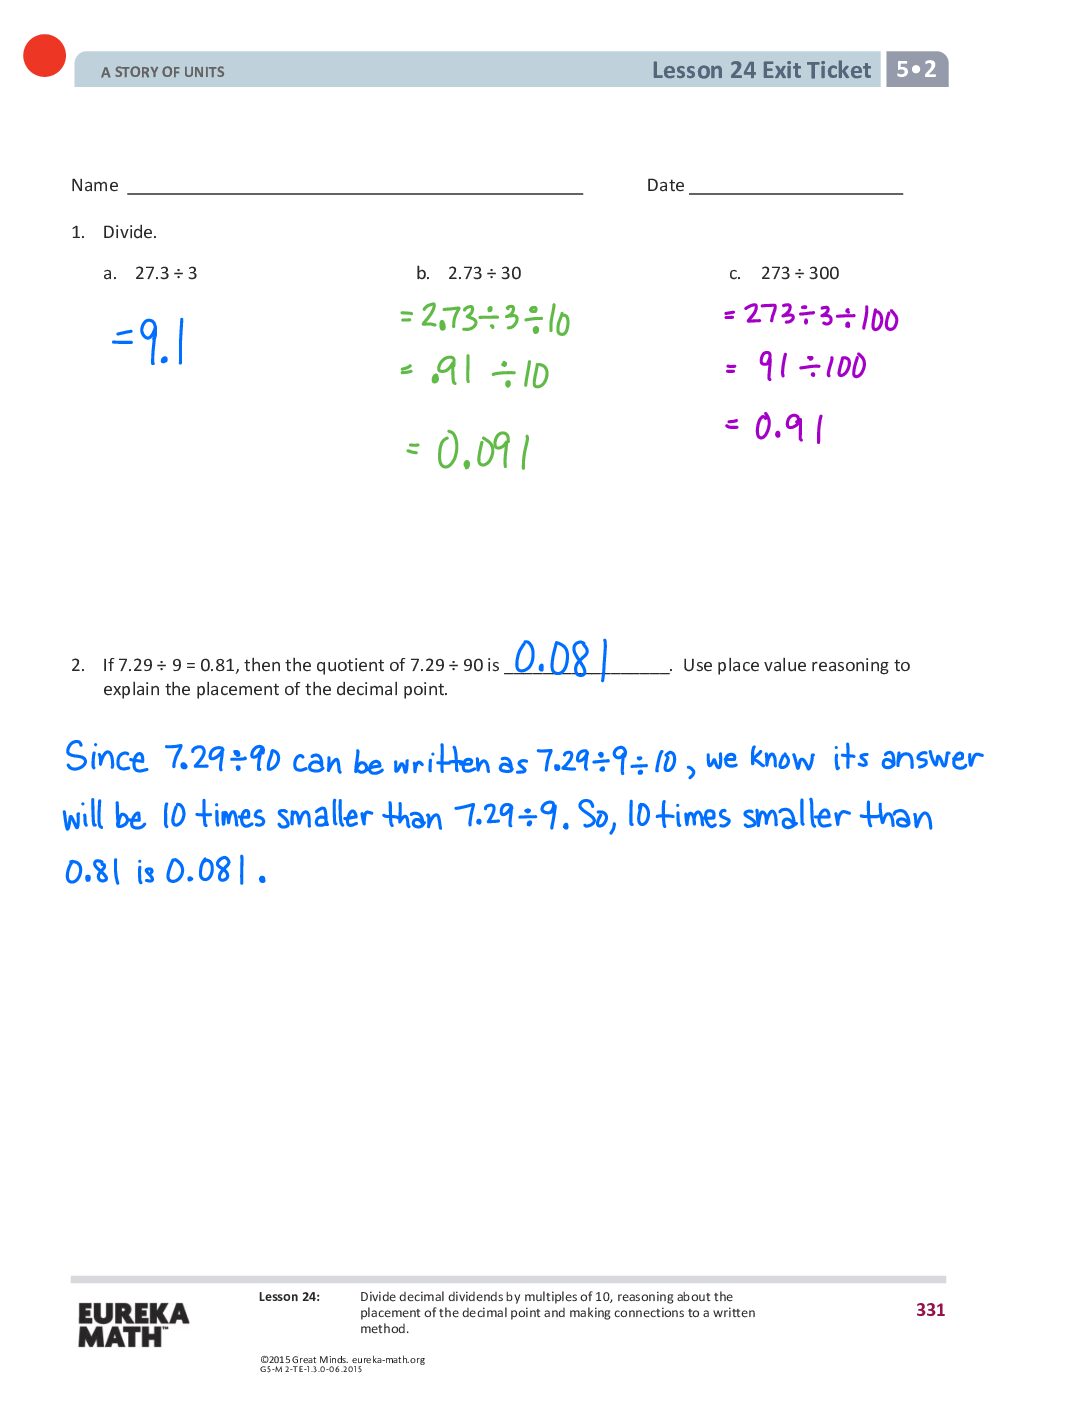 A STORY OF UNITS
Lesson 24 Exit Ticket 5•2
Name Date
1. Divide.
a. 27.3 ÷ 3 b. 2.73 ÷ 30 c. 273 ÷ 300
= 9.1
= 2.73 ÷ 3 ÷ 10
= .91 ÷ 10
= 0.091
= 273 ÷ 3 ÷ 100
= 91 ÷ 100
= 0.91
2. If 7.29 ÷ 9 = 0.81, then the quotient of 7.29 ÷ 90 is 0.081. Use place value reasoning to
explain the placement of the decimal point.
Since 7.29÷90 can be written as 7.29÷9÷10, we know its answer
will be 10 times smaller than 7.29÷9. So, 10 times smaller than
0.81 is 0.081.
EUREKA
MATH™
Lesson 24: Divide decimal dividends by multiples of 10, reasoning about the
placement of the decimal point and making connections to a written
method.
331
©2015 Great Minds. eureka-math.org
G5-M2-TE-1.3.0-06.2015